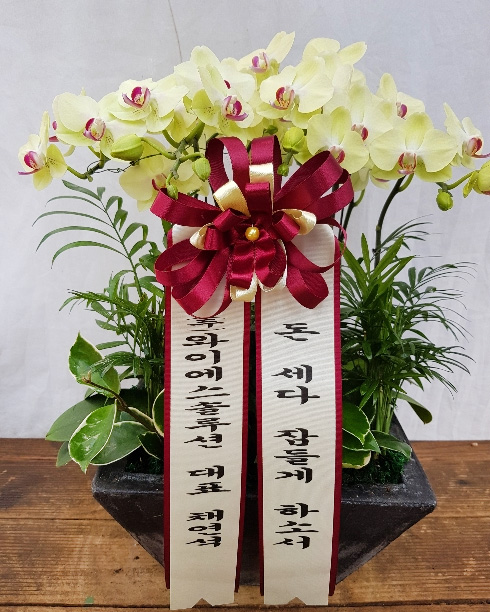 돈 세다 잠들게 하소서
와이에스솔루션 대표 채연석